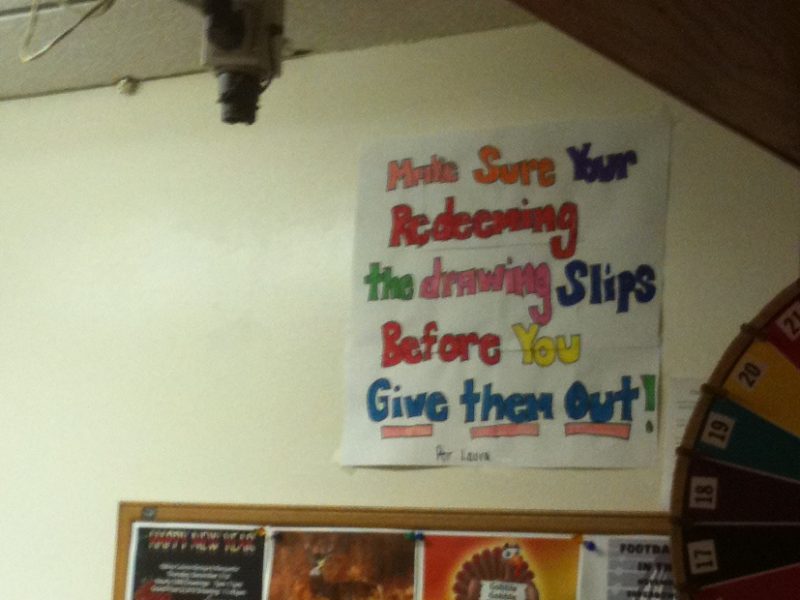 Make Sure Your
Redeeming
the drawing Slips
Before You
Give them Out!
Per Laura
21
20
19
18
17
HAPPY NEW YEAR
Gobble
Gobble
FOOTBA
IN TH